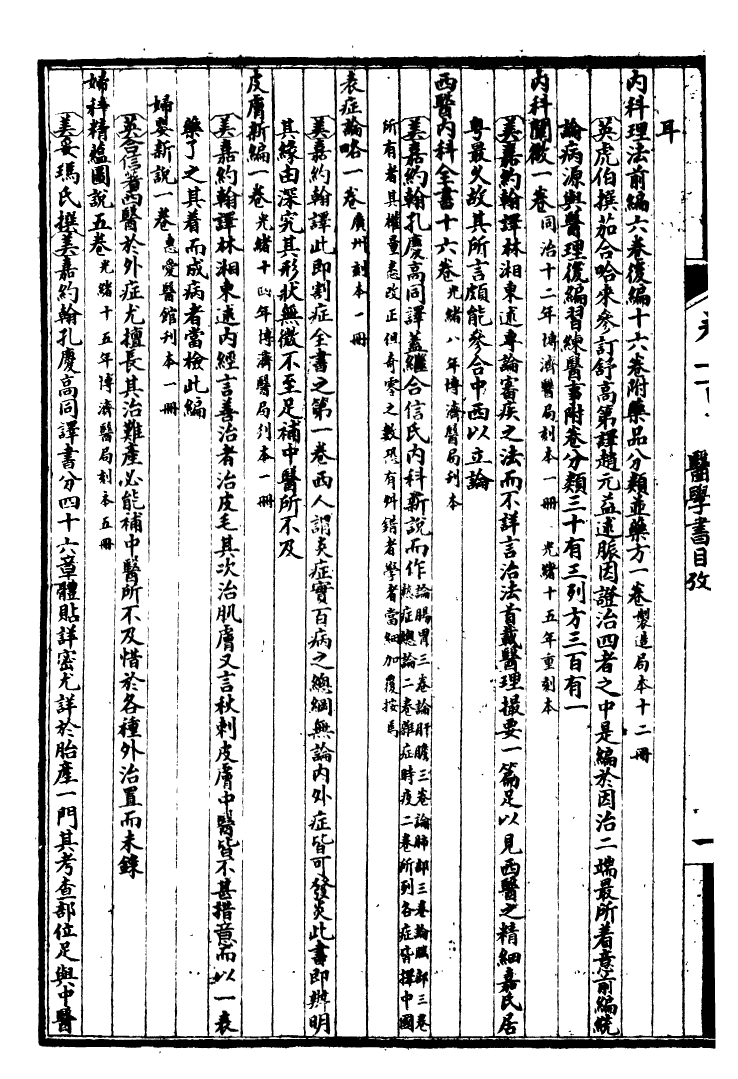 醫學書目攷
耳
內科理法前編六卷後編十六卷附藥品分類並藥方一卷製造局本十二冊
英虎伯撰茄合哈來參訂舒高第譯趙元益述脈因證治四者之中是編於因治二端最所着意前編統
論病源與醫理後編習練醫事附卷分類三十有三列方三百有一
內科闡微一卷同治十二年博濟醫局刻本一冊 光緒十五年重刻本
美嘉約翰譯林湘東述專論審疾之法而不詳言治法首載醫理撮要一篇足以見西醫之精細嘉氏居
粵最久故其所言頗能參合中西以立論
西醫內科全書十六卷光緒八年博濟醫局刊本
美嘉約翰孔慶高同譯蓋繼合信氏內科新說而作論腸胃三卷論肝膽三卷論肺部三卷論腦部三卷
熱症總論二卷雜症時疫二卷所列各症皆擇中國
所有者其權量悉改正但奇零之數恐有舛錯者學者當細加覆按焉
表症論略一卷廣州刻本一冊
美嘉約翰譯此即割症全書之第一卷西人謂炎症實百病之總綱無論內外症皆可發炎此書即辨明
其緣由深究其形狀無微不至足補中醫所不及
皮膚新編一卷光緒十四年博濟醫局刊本一冊
美嘉約翰譯林湘東述內經言善治者治皮毛其次治肌膚又言秋刺皮膚中醫皆不甚措意而以一表
藥了之其着而成病者當檢此編
婦嬰新說一卷惠愛醫館刊本一冊
英合信著西醫於外症尤擅長其治難產必能補中醫所不及惜於各種外治置而未錄
婦科精蘊圖說五卷光緒十五年博濟醫局刻本五冊
美妥瑪氏撰美嘉約翰孔慶高同譯書分四十六章體貼詳密尤詳於胎產一門其考查部位足與中醫